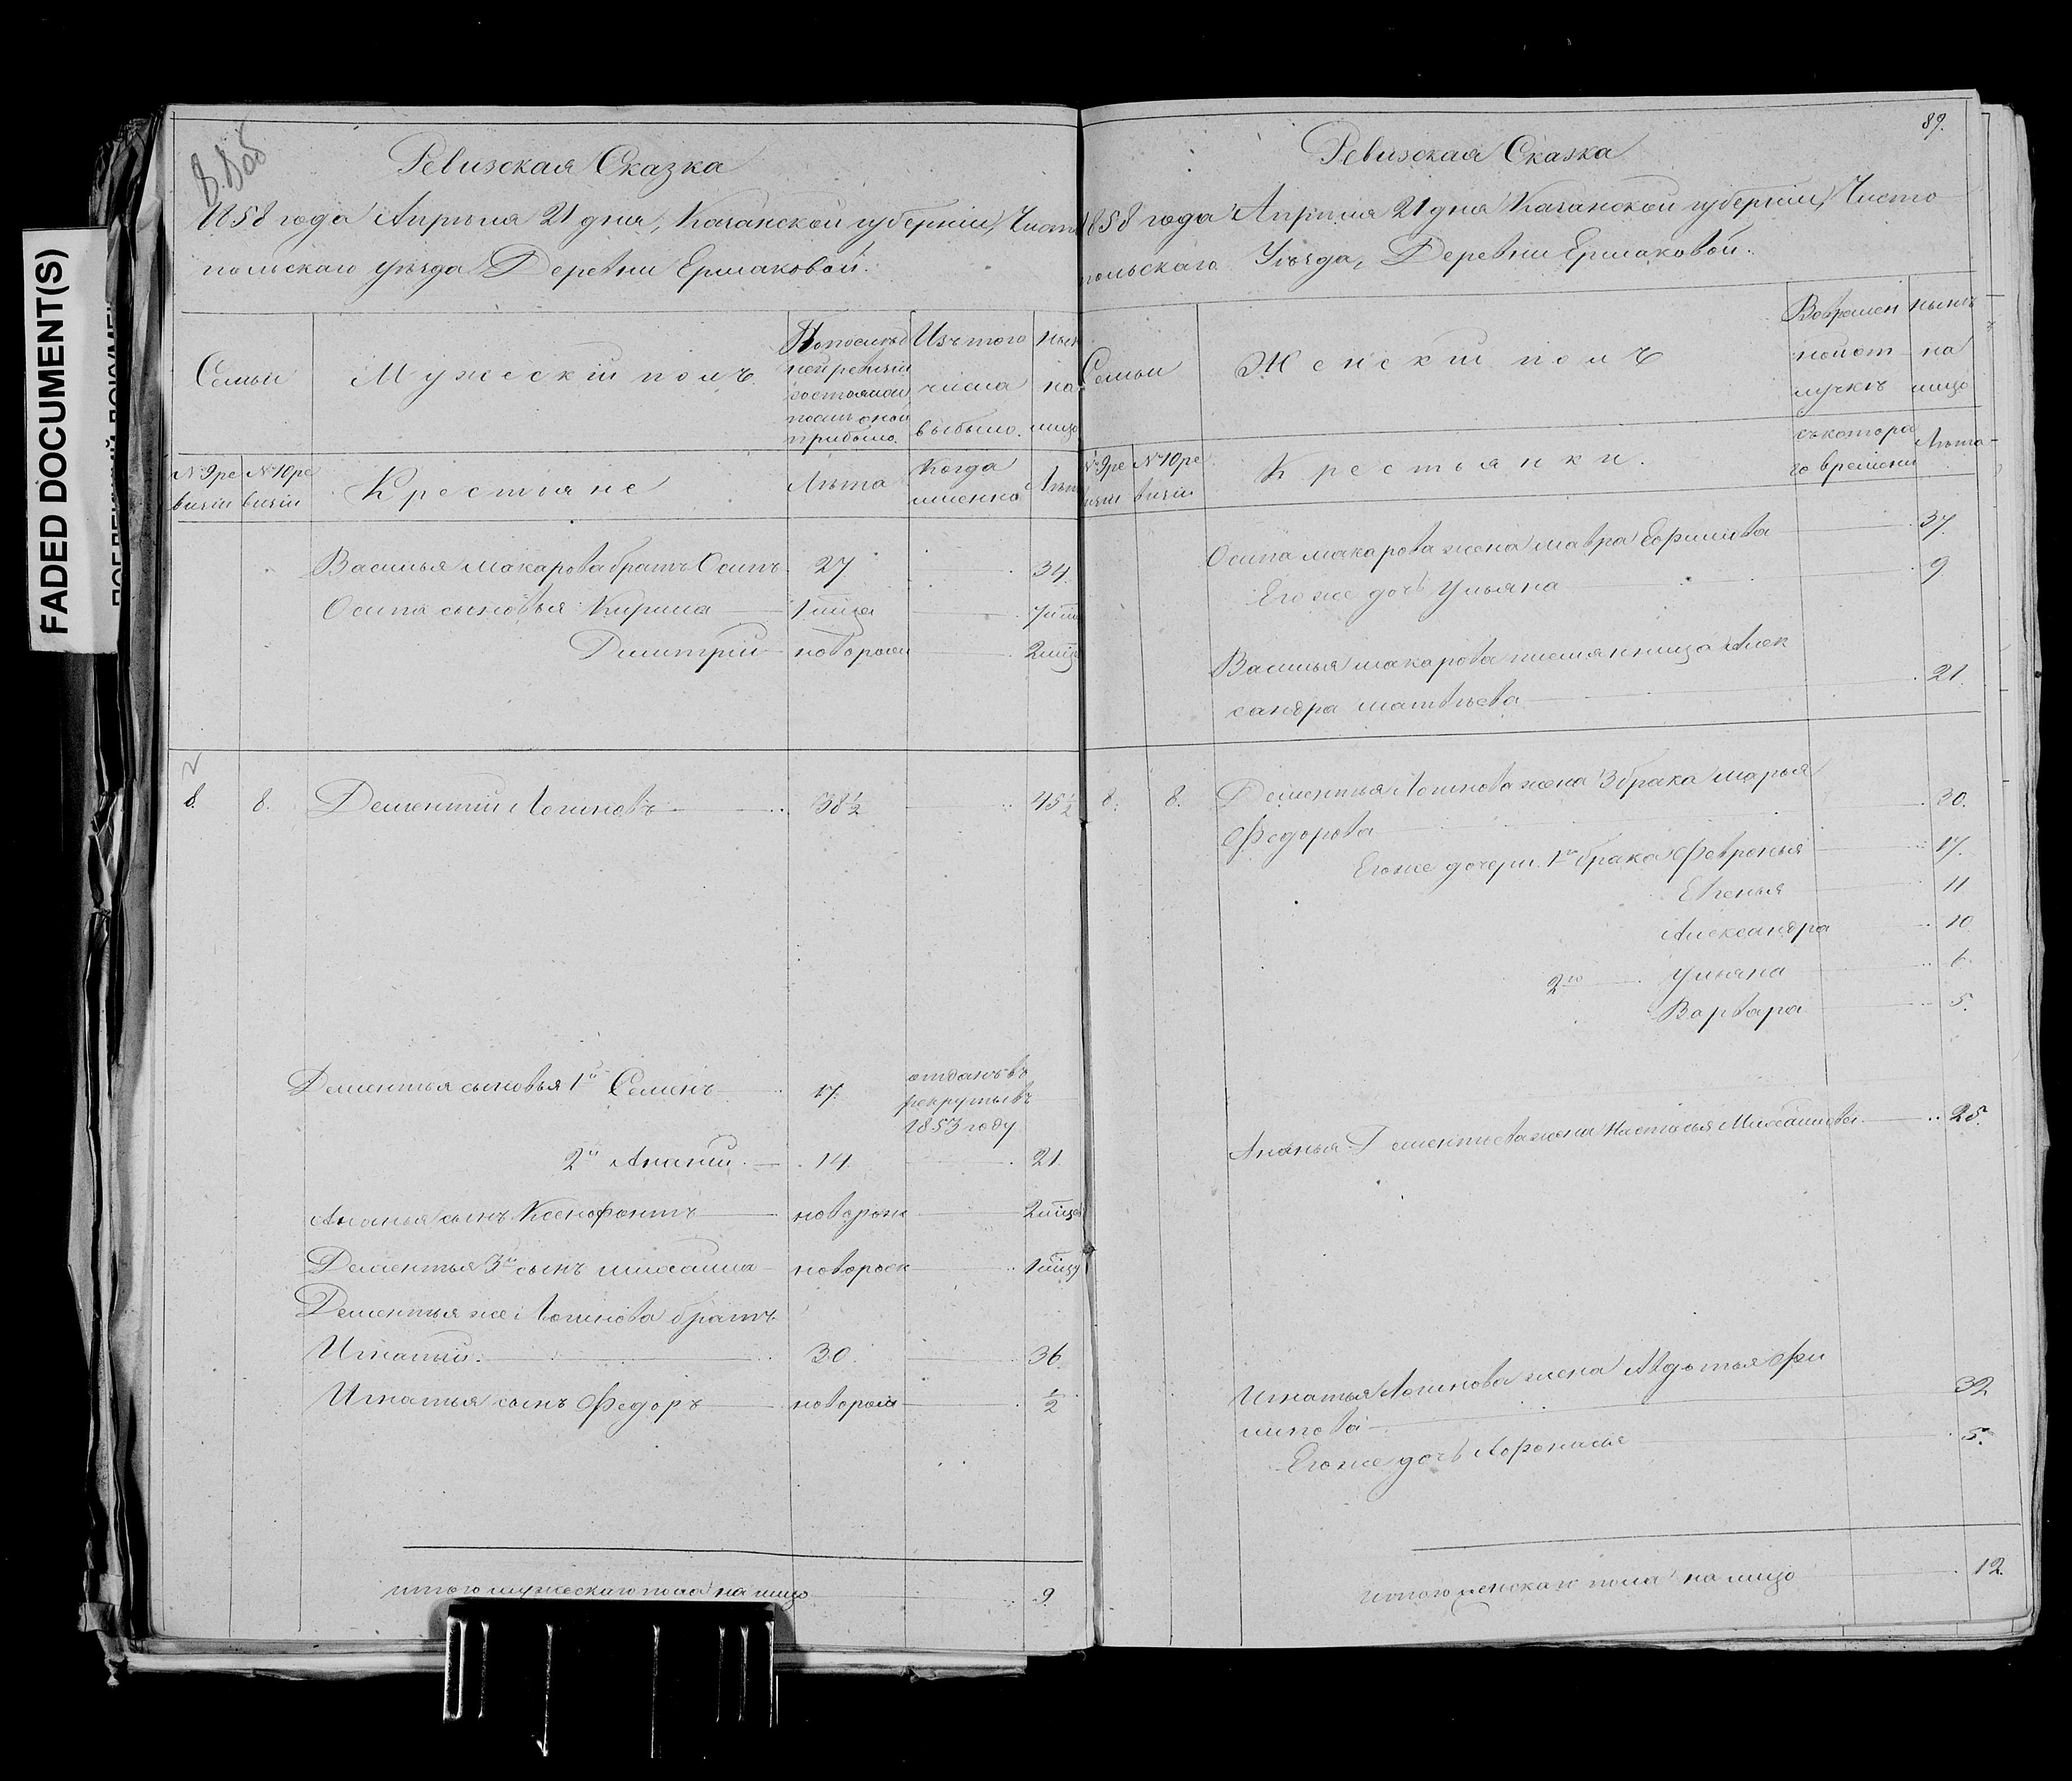 FADED DOCUMENT(S)
Ревизская Сказка
1858 года Апрѣля 21 дня, Казанской губерніи, Чисто
польскаго уѣзда Деревни Ермаковой.
Семьи
Мужескій полъ.
По послѣд
ней ревизіи
состояло и
послѣ оной
прибыло.
Изъ того
числа
выбыло.
ны
на
лицо
№ 9 ре
визіи
№ 10 ре
визіи
Крестьяне
Лѣта
Когда
именно
Лѣт
Василья Макарова братъ Осипъ 27 34.
Осипа сыновья Кирила 1 мѣца 7
Димитрій новорож 2 мѣц
8. 8. Дементій Логиновъ 38½ 45½
Дементья сыновья 1й Семенъ 17. отданъ въ
рекруты въ
1853 году
2й Ананій 14 21
Ананья сынъ Ксенофонтъ новорож 2 мѣца
Дементья 3й сынъ Михаила новорож 1 мѣц
Дементья же Логинова братъ
Игнатій. 30. 36.
Игнатья сынъ Федоръ новорож ½
итого мужескаго пола на лицо 9.
89.
Ревизская Сказка
1858 года Апрѣля 21 дня Казанской губерніи, Чисто
польскаго Уѣзда, Деревни Ермаковой.
Семьи
Женскій полъ
Во времен
ной от
лучкѣ
нынѣ
на
лицо
№ 9 ре
визіи
№ 10 ре
визіи
Крестьянки.
съ котора
го времени
Лѣта
Осипа Макарова жена Мавра Ефимова 37.
Его же дочь Ульяна 9
Василья Макарова племянница Алек
сандра Матвѣева 21.
8. 8. Дементья Логинова жена 3 брака Марья
Федорова 30.
Его же дочери 1го брака Февронья 17.
Евгенья 11
Александра 10
2го Ульяна 6.
Варвара 5.
Ананья Дементьева жена Настасья Михайлова 25.
Игнатья Логинова жена Авдотья Фи
липова 32
Его же дочь Афонасья 5.
Итого женскаго пола на лицо 12.